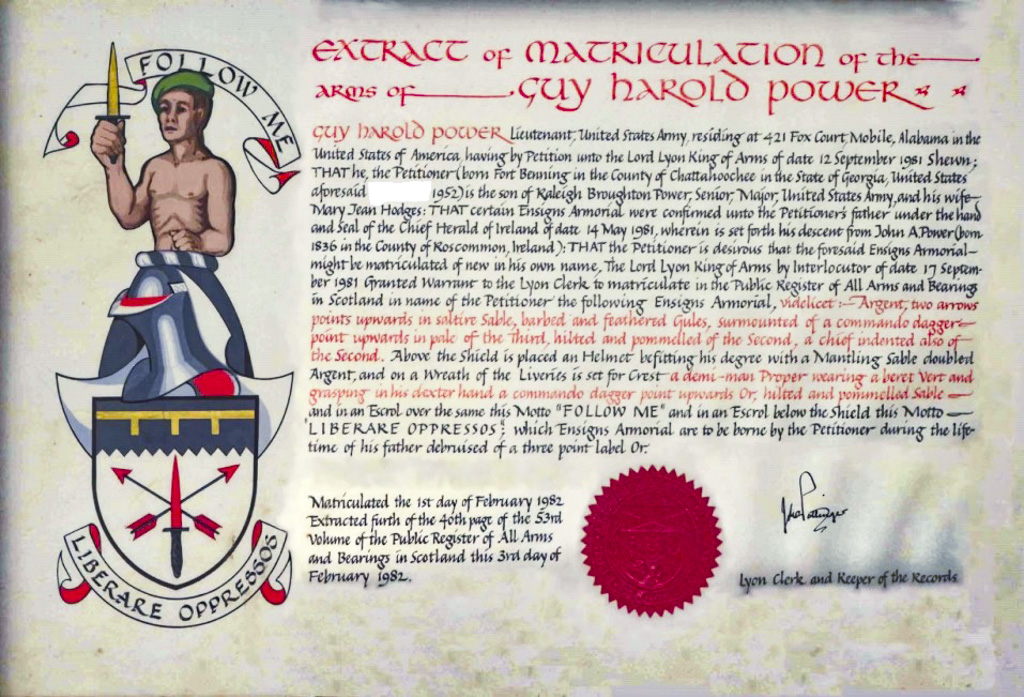 FOLLOW ME
EXTRACT of MATRICULATION of the
ARMS OF GUY HAROLD POWER
GUY HAROLD POWER Lieutenant, United States Army, residing at 421 Fox Court, Mobile, Alabama in the
United States of America, having by Petition unto the Lord Lyon King of Arms of date 12 September 1981 Shewn;
THAT he, the Petitioner (born Fort Benning in the County of Chattahoochee in the State of Georgia, United States
aforesaid 1952) is the son of Raleigh Broughton Power, Senior, Major, United States Army, and his wife
Mary Jean Hodges: THAT certain Ensigns Armorial were confirmed unto the Petitioner's father under the hand
and Seal of the Chief Herald of Ireland of date 14 May 1981, wherein is set forth his descent from John A. Power (born
1836 in the County of Roscommon, Ireland); THAT the Petitioner is desirous that the foresaid Ensigns Armorial
might be matriculated of new in his own name, The Lord Lyon King of Arms by Interlocutor of date 17 Septem-
ber 1981 Granted Warrant to the Lyon Clerk to matriculate in the Public Register of All Arms and Bearings
in Scotland in name of the Petitioner the following Ensigns Armorial, videlicet :- Argent, two arrows
points upwards in saltire Sable, barbed and feathered Gules, surmounted of a commando dagger
point upwards in pale of the Third, hilted and pommelled of the Second, a chief indented also of
the Second. Above the Shield is placed an Helmet befitting his degree with a Mantling Sable doubled
Argent, and on a Wreath of the Liveries is set for Crest a demi-man Proper wearing a beret Vert and
grasping in his dexter hand a commando dagger point upwards Or, hilted and pommelled Sable
and in an Escrol over the same this Motto "FOLLOW ME" and in an Escrol below the Shield this Motto
"LIBERARE OPPRESSOS", which Ensigns Armorial are to be borne by the Petitioner during the life-
time of his father debruised of a three point label Or.
Matriculated the 1st day of February 1982
Extracted furth of the 40th page of the 53rd
Volume of the Public Register of All Arms
and Bearings in Scotland this 3rd day of
February 1982.
Lyon Clerk and Keeper of the Records
LIBERARE OPPRESSOS